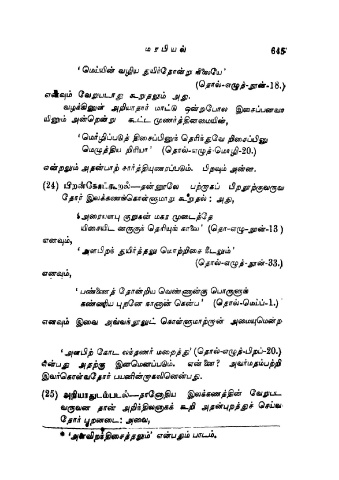 மரபியல் 645
‘மெய்யின் வழிய துயிர்தோன்று நிலையே’
(தொல்-எழுத்-நூன்-18.)
எனவும் வேறுபடாது கூறதலும் அது.
வழக்கினுள் அறியாதார் மாட்டு ஒன்றபோல இசைப்பனவா
யினும் அன்றென்று கூட்ட முணர்த்தினமையின்,
‘மெ‌ழிப்படுத் திசைப்பினுந் தெரிந்துவே றிசைப்பினு
மெழுத்திய றிரியா’ (தொல்-எழுத்-மொழி-20.)
என்றலும் அதன்பாற் சார்த்தியுணரப்படும். பிறவும் அன்ன.
(24) பிறன்கோட்கூறல்—தன்னூலே பற்றாகப் பிறநூற்குவருவ
தோர் இலக்கணங்கொள்ளுமாறு கூறதல் : அது,
‘அரையளபு குறுகன் மகர முடைத்தே
யிசையிட னருகுந் தெரியுங் காலை’ (தொ-எழு-நூன்-13)
எனவும்,
‘அளபிறந் துயிர்த்தலு மொற்றிசை நீடலும்’
(தொல்-எழுத்-நூன்-33.)
எனவும்,
‘பண்ணைத் தோன்றிய வெண்ணான்கு பொருளுக்
கண்ணிய புறனே நானான் கென்ப’ (தொல்-மெய்ப்-1.)
எனவும் இவை அவ்வந்நூலுட் கொள்ளுமாற்றான் அமையுமென்ற
‘அளபிற் கோட லந்தணர் மறைத்து’ (தொல்-எழுத்-பிறப்-20.)
என்பது அதற்கு இனமெனப்படும். என்னை? அவர்மதம்பற்றி
இவர்கொள்வதோர் பயனின்றாகலினென்பது.
(25) அறியாதுடம்படல்—தானோதிய இலக்கணத்தின் வேறுபட
வருவன தான் அறிந்திலனாகக் கூறி அதன்புறத்துச் செய்வ
தோர் புறனடை: அவை,
* ‘அளவிறந்திசைத்தலும்’ என்பதும் பாடம்.